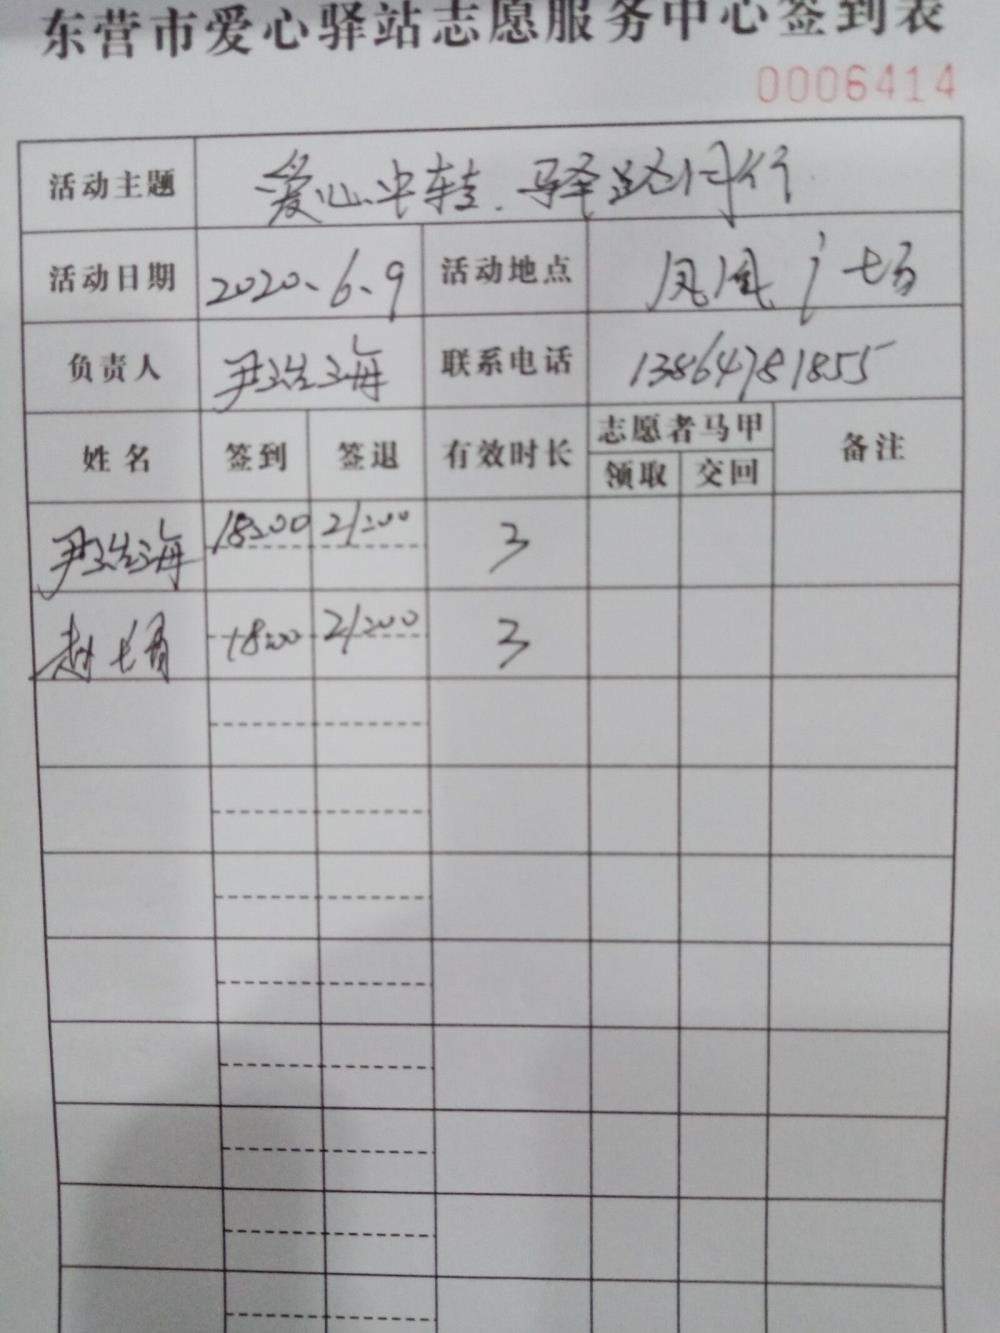 东营市爱心驿站志愿服务中心签到表
0006414
活动主题 爱心中转.驿路同行
活动日期 2020、6、9 活动地点 凤凰广场
负责人 尹浩海 联系电话 13864781855
姓名 签到 签退 有效时长 志愿者马甲 备注
领取 交回
尹浩海 18:00 21:00 3
赵 18:00 21:00 3